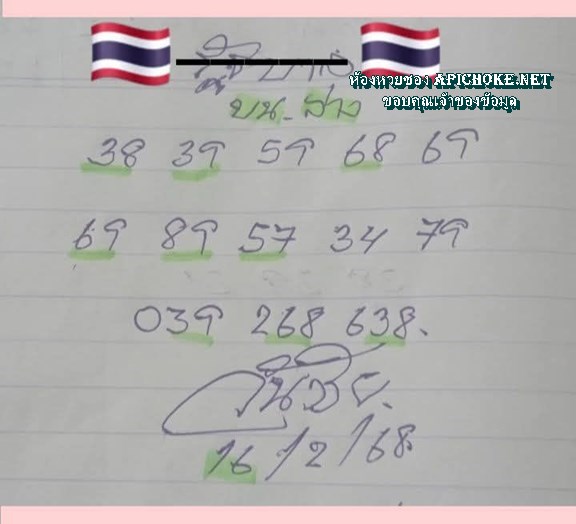 ห้องหวยซอง APICHOKE.NET
ขอบคุณเจ้าของข้อมูล
บน - ล่าง
38 39 59 68 69
69 89 57 34 79
039 268 638.
16/2/68